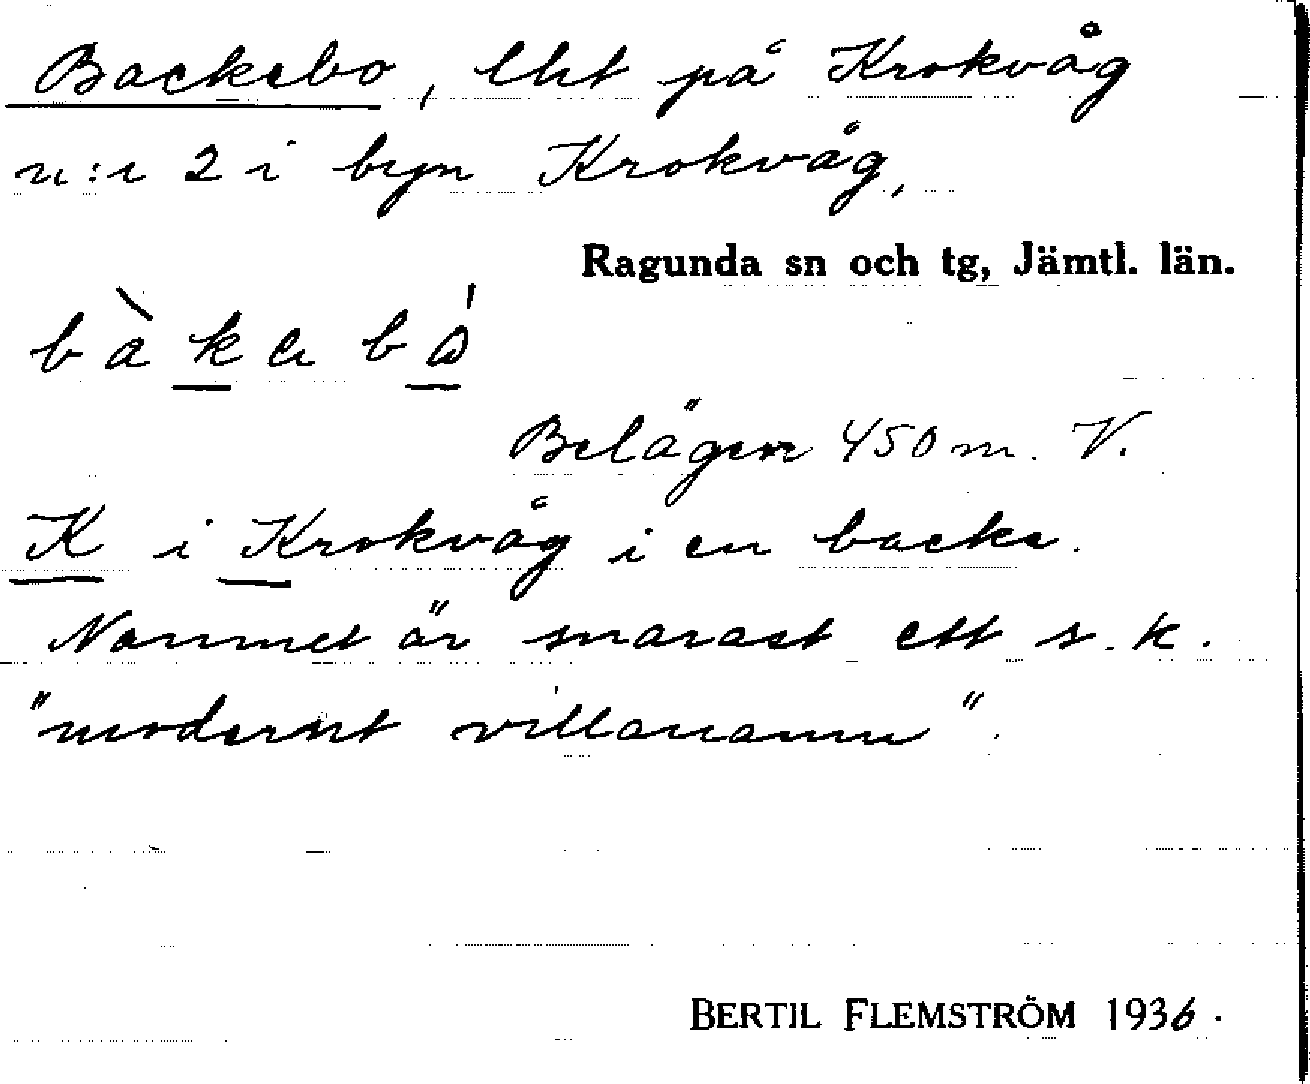 Backebo, lht på Krokvåg
n:r 2 i byn Krokvåg,
Ragunda sn och tg, Jämtl. län.
Belägen 450 m. V.
K i Krokvåg i en backe.
Namnet är snarast ett s.k.
"modernt villanamn".
BERTIL FLEMSTRÖM 1936.